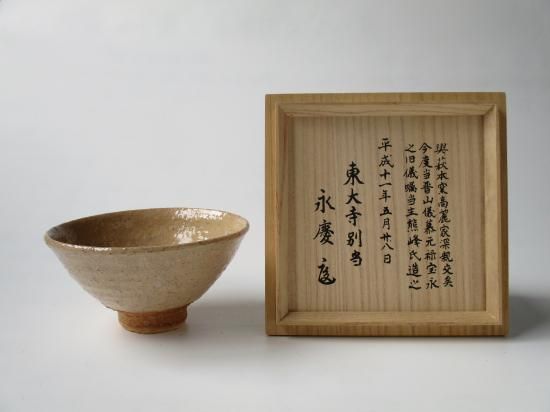 與萩本窯高麗家深親交矣
今度当晋山儀慕元禄宝永
之旧儀嘱当主熊峰氏造之
平成十一年五月廿八日
東大寺別当
永慶